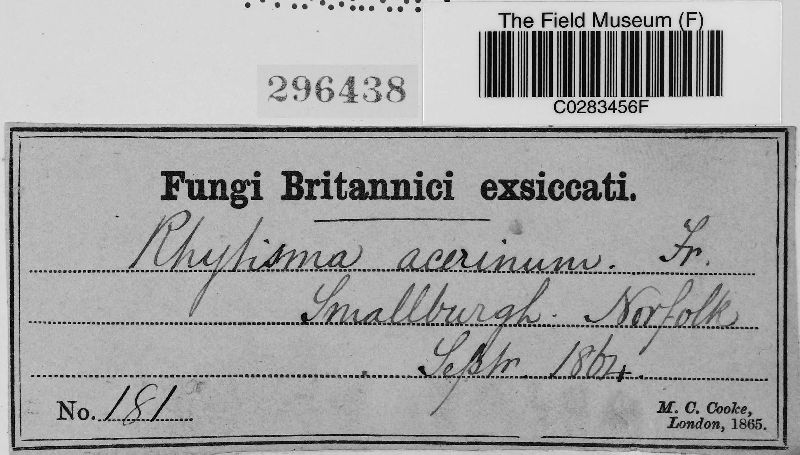 The Field Museum (F)
296438
C0283456F
Fungi Britannici exsiccati.
Rhytisma acerinum. Fr.
Smallburgh. Norfolk
Septr. 1864.
No. 181
M. C. Cooke,
London, 1865.